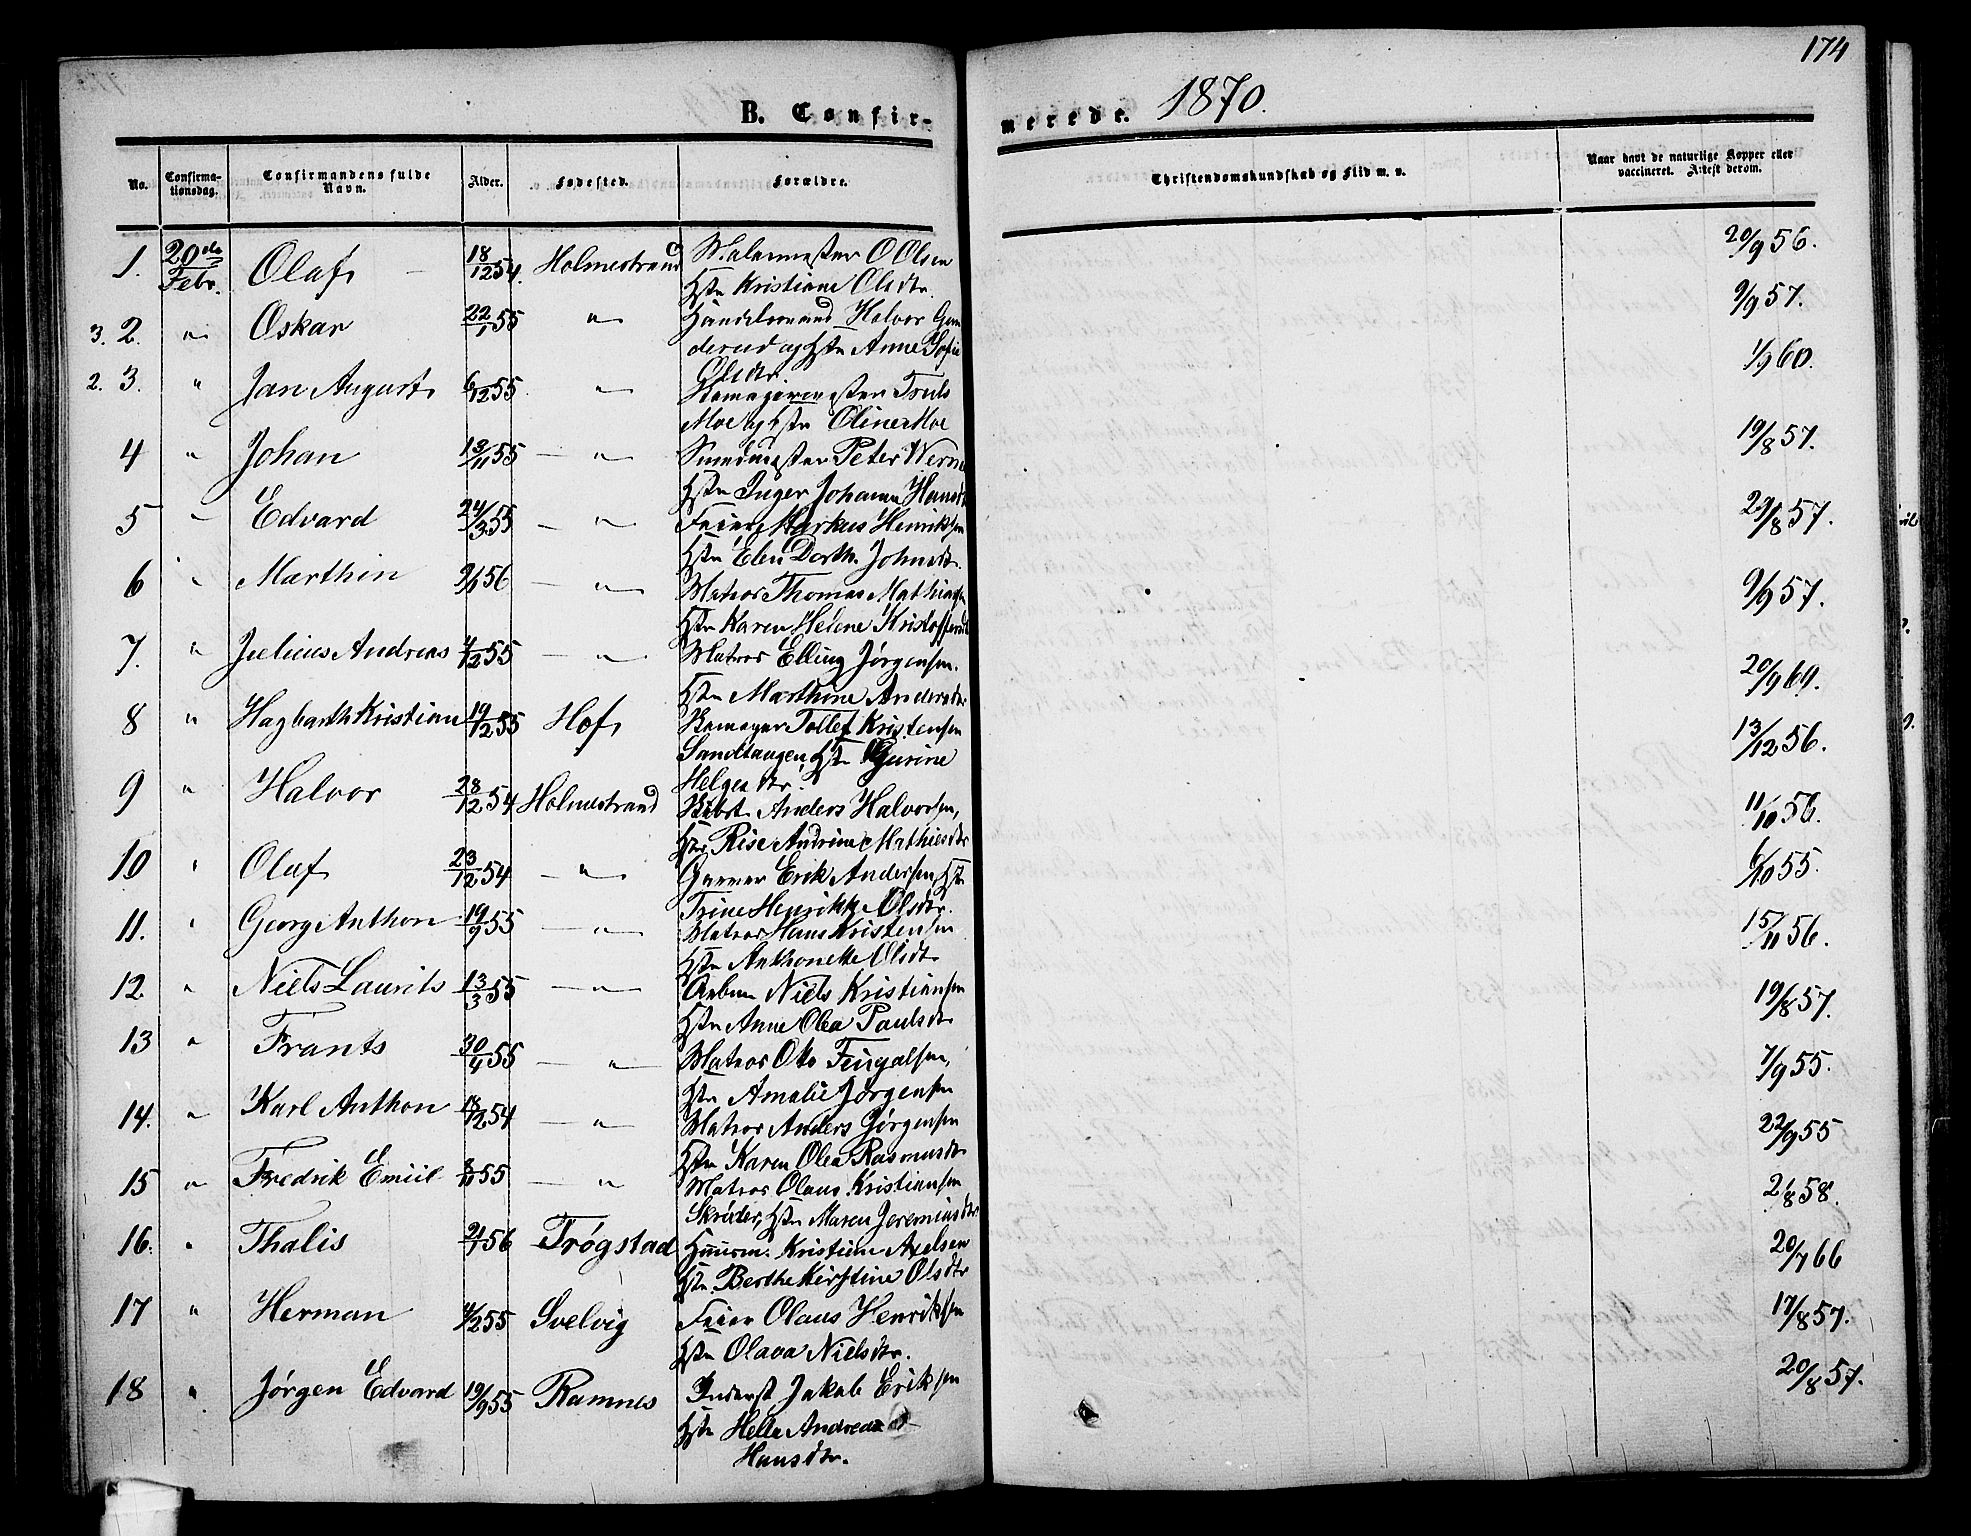 174
B. Confirmerede. 1870.
No. Confirmationsdag. Confirmandens fulde Navn. Alder. Fødested. Forældre. Christendomskundskab og Flid m. v. Naar havt de naturlige Kopper eller vaccineret. Attest derom.
1. 20de Febr. Olaf 18/12 54. Holmestrand Malermester O Olsen 20/9 56.
Hstr Kristiane Olsdtr.
3. 2. " Oskar 22/1 55 " Handelsmand Halvor Gun 9/9 57.
derud og Hstr Anne Sofie
Olsdtr.
2. 3. " Jan August 6/12 55 " Truls 1/9 60.
Moe og Hstr Oline Moe
4 " Johan 13/11 55 " Smedmester Peter Werne 19/8 57.
Hstr Inger Johanne Hansdt
5 " Edvard 24/3 55 " Feier Markus Henriksen 29/8 57.
Hstr Elen Dorth. Johnsdtr.
6 " Marthin 9/1 56 " Matros Thomas Mathiasen 9/9 57.
Hstr Karen Helene Kristoffersdt
7. " Julius Andreas 4/12 55 " Matros Elling Jørgensen. 20/9 69.
Hstr Marthine Andersdtr
8 " Hagbarth Kristian 19/12 55 Hof Tollef Kristensen 13/12 56.
Sandtangen, Hstr Gurine
Helgesdtr
9 " Halvor 28/12 54 Holmestrand Anders Halvorsen, 11/10 56.
Hstr Rise Andrine Mathiesdtr
10 " Olaf 23/12 54 " Garver Erik Andersen, Hstr 6/10 55.
Trine Henrikke Olsdtr.
11. " Georg Anthon 19/9 55 " Matros Hans Kristensen 15/11 56.
Hstr Anthonette Olsdtr
12. " Niels Laurits 13/3 55 " Arbm Niels Kristiansen 19/8 57.
Hstr Anne Olea Paulsdtr
13 " Frants 30/4 55 " Matros Otto Fingalsen, 7/9 55.
Hstr Amalie Jørgensen
14. " Karl Anthon 18/12 54 " Matros Anders Jørgensen 22/9 55
Hstr Karen Olea Rasmusdtr
15 " Fredrik Emiil 8/11 55 " Matros Olaus Kristiansen 2/8 58.
Skrøder, Hstr Maren Jeremiasdtr
16. " Thalis 2/1 56 Trøgstad Huusm. Kristian Axelsen 20/7 66
Hstr. Berthe Kirstine Olsdtr
17 " Herman 4/2 55 Svelvig Feier Olaus Henriksen 17/8 57.
Hstr Olava Nielsdtr.
18 " Jørgen Edvard 19/9 55 Ramnes Inderst Jakob Eriksen 20/8 57.
Hstr Helle Andrea
Hansdtr.